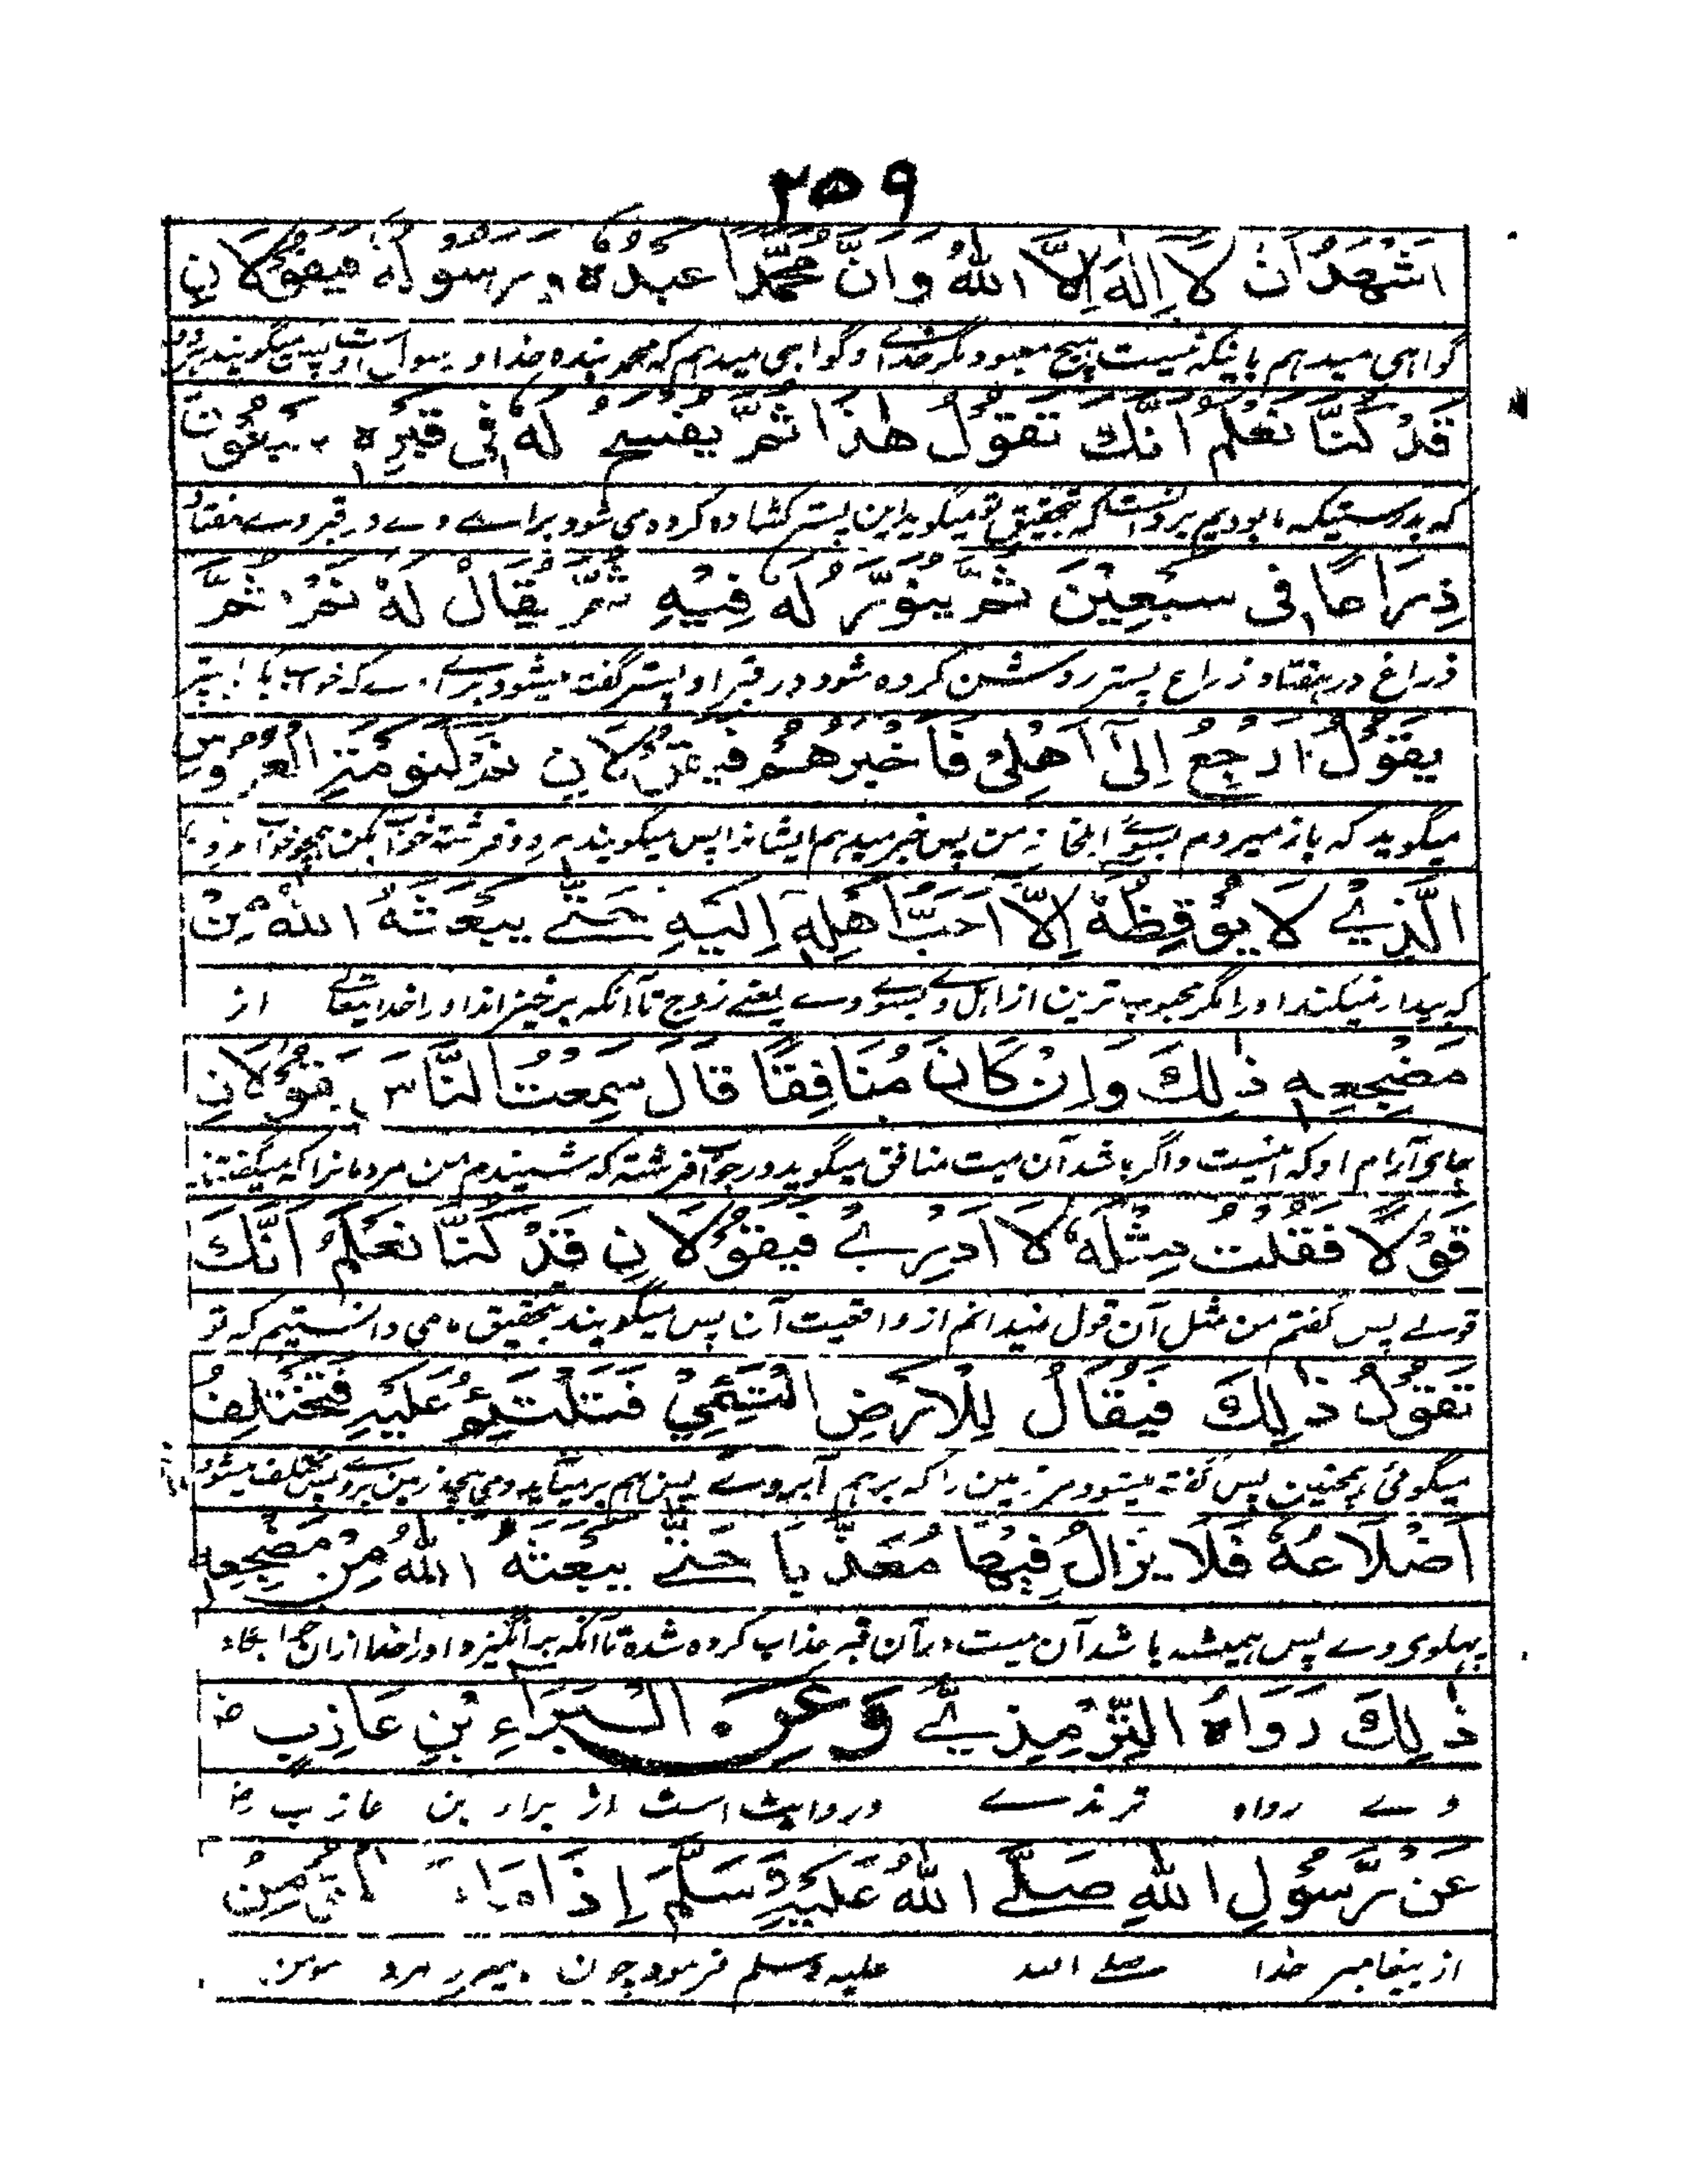 ٢٥٩
اَشْهَدُ اَنْ لَا اِلٰهَ اِلَّا اللّٰهُ وَاَنَّ مُحَمَّدًا عَبْدُهٗ وَرَسُوْلُهٗ فَيَقُوْلَانِ
گواهی میدهم باینکه نیست هیچ معبود مگر خدای و گواهی میدهم که محمد بنده خدا و رسول اوست پس میگویند
قَدْ كُنَّا نَعْلَمُ اَنَّكَ تَقُوْلُ هٰذَا ثُمَّ يُفْسَحُ لَهٗ فِي قَبْرِهٖ سَبْعُوْنَ
که بدرستیکه ما بودیم که تحقیق تو میگوید این پستر کشاده کرده می شود برای وے در قبر وے هفتاد
ذِرَاعًا فِي سَبْعِيْنَ ثُمَّ يُنَوَّرُ لَهٗ فِيْهِ ثُمَّ يُقَالُ لَهٗ نَمْ ثُمَّ
ذراع در هفتاد ذراع پستر روشن کرده شود در قبر او پستر گفته میشود براے وے که خواب
يَقُوْلُ اَرْجِعُ اِلٰى اَهْلِيْ فَاُخْبِرُهُمْ فَيَقُوْلَانِ نَمْ كَنَوْمَةِ الْعَرُوْسِ
میگوید که باز میروم بسوے من پس خبر میدهم ایشانرا پس میگویند هر دو فرشته خواب بکن همچو خواب
الَّذِيْ لَا يُوْقِظُهٗ اِلَّا اَحَبُّ اَهْلِهٖ اِلَيْهِ حَتّٰى يَبْعَثَهُ اللّٰهُ مِنْ
که بیدار نمیکند او را مگر محبوب ترین از اهل وے بسوے وے یعنے زوج تا آنکه برخیزاند او را خدایتعالے از
مَضْجِعِهٖ ذٰلِكَ وَاِنْ كَانَ مُنَافِقًا قَالَ سَمِعْتُ النَّاسَ يَقُوْلَانِ
جای آرام او که اینست و اگر باشد آن میت منافق میگوید در جواب فرشته که شنیدم من مردمانرا که میگفتند
قَوْلًا فَقُلْتُ مِثْلَهٗ لَا اَدْرِيْ فَيَقُوْلَانِ قَدْ كُنَّا نَعْلَمُ اَنَّكَ
قولے پس گفتم من مثل آن قول نمیدانم از واقعیت آن پس میگویند بتحقیق ما می دانستیم که تو
تَقُوْلُ ذٰلِكَ فَيُقَالُ لِلْاَرْضِ الْتَئِمِيْ فَتَلْتَئِمُ عَلَيْهِ فَتَخْتَلِفُ
میگوئی همچنین پس گفته میشود مر زمین را که برهم آ بروے پس بهم بر میآید زمین بروے پس مختلف میشود
اَضْلَاعُهٗ فَلَا يَزَالُ فِيْهَا مُعَذَّبًا حَتّٰى يَبْعَثَهُ اللّٰهُ مِنْ مَضْجِعِهٖ
پهلوی وے پس همیشه باشد آن میت در آن قبر عذاب کرده شده تا آنکه برانگیزد او را خدا ازان
ذٰلِكَ رَوَاهُ التِّرْمِذِيُّ وَعَنِ الْبَرَاءِ بْنِ عَازِبٍ رض
وے رواه ترمذے و روایت است از براء بن عازب رض
عَنْ رَّسُوْلِ اللّٰهِ صَلَّى اللّٰهُ عَلَيْهِ وَسَلَّمَ اِذَا مَاتَ الْمُؤْمِنُ
از پیغامبر خدا صلے الله علیه وسلم فرمود چون بمیرد مرد مومن